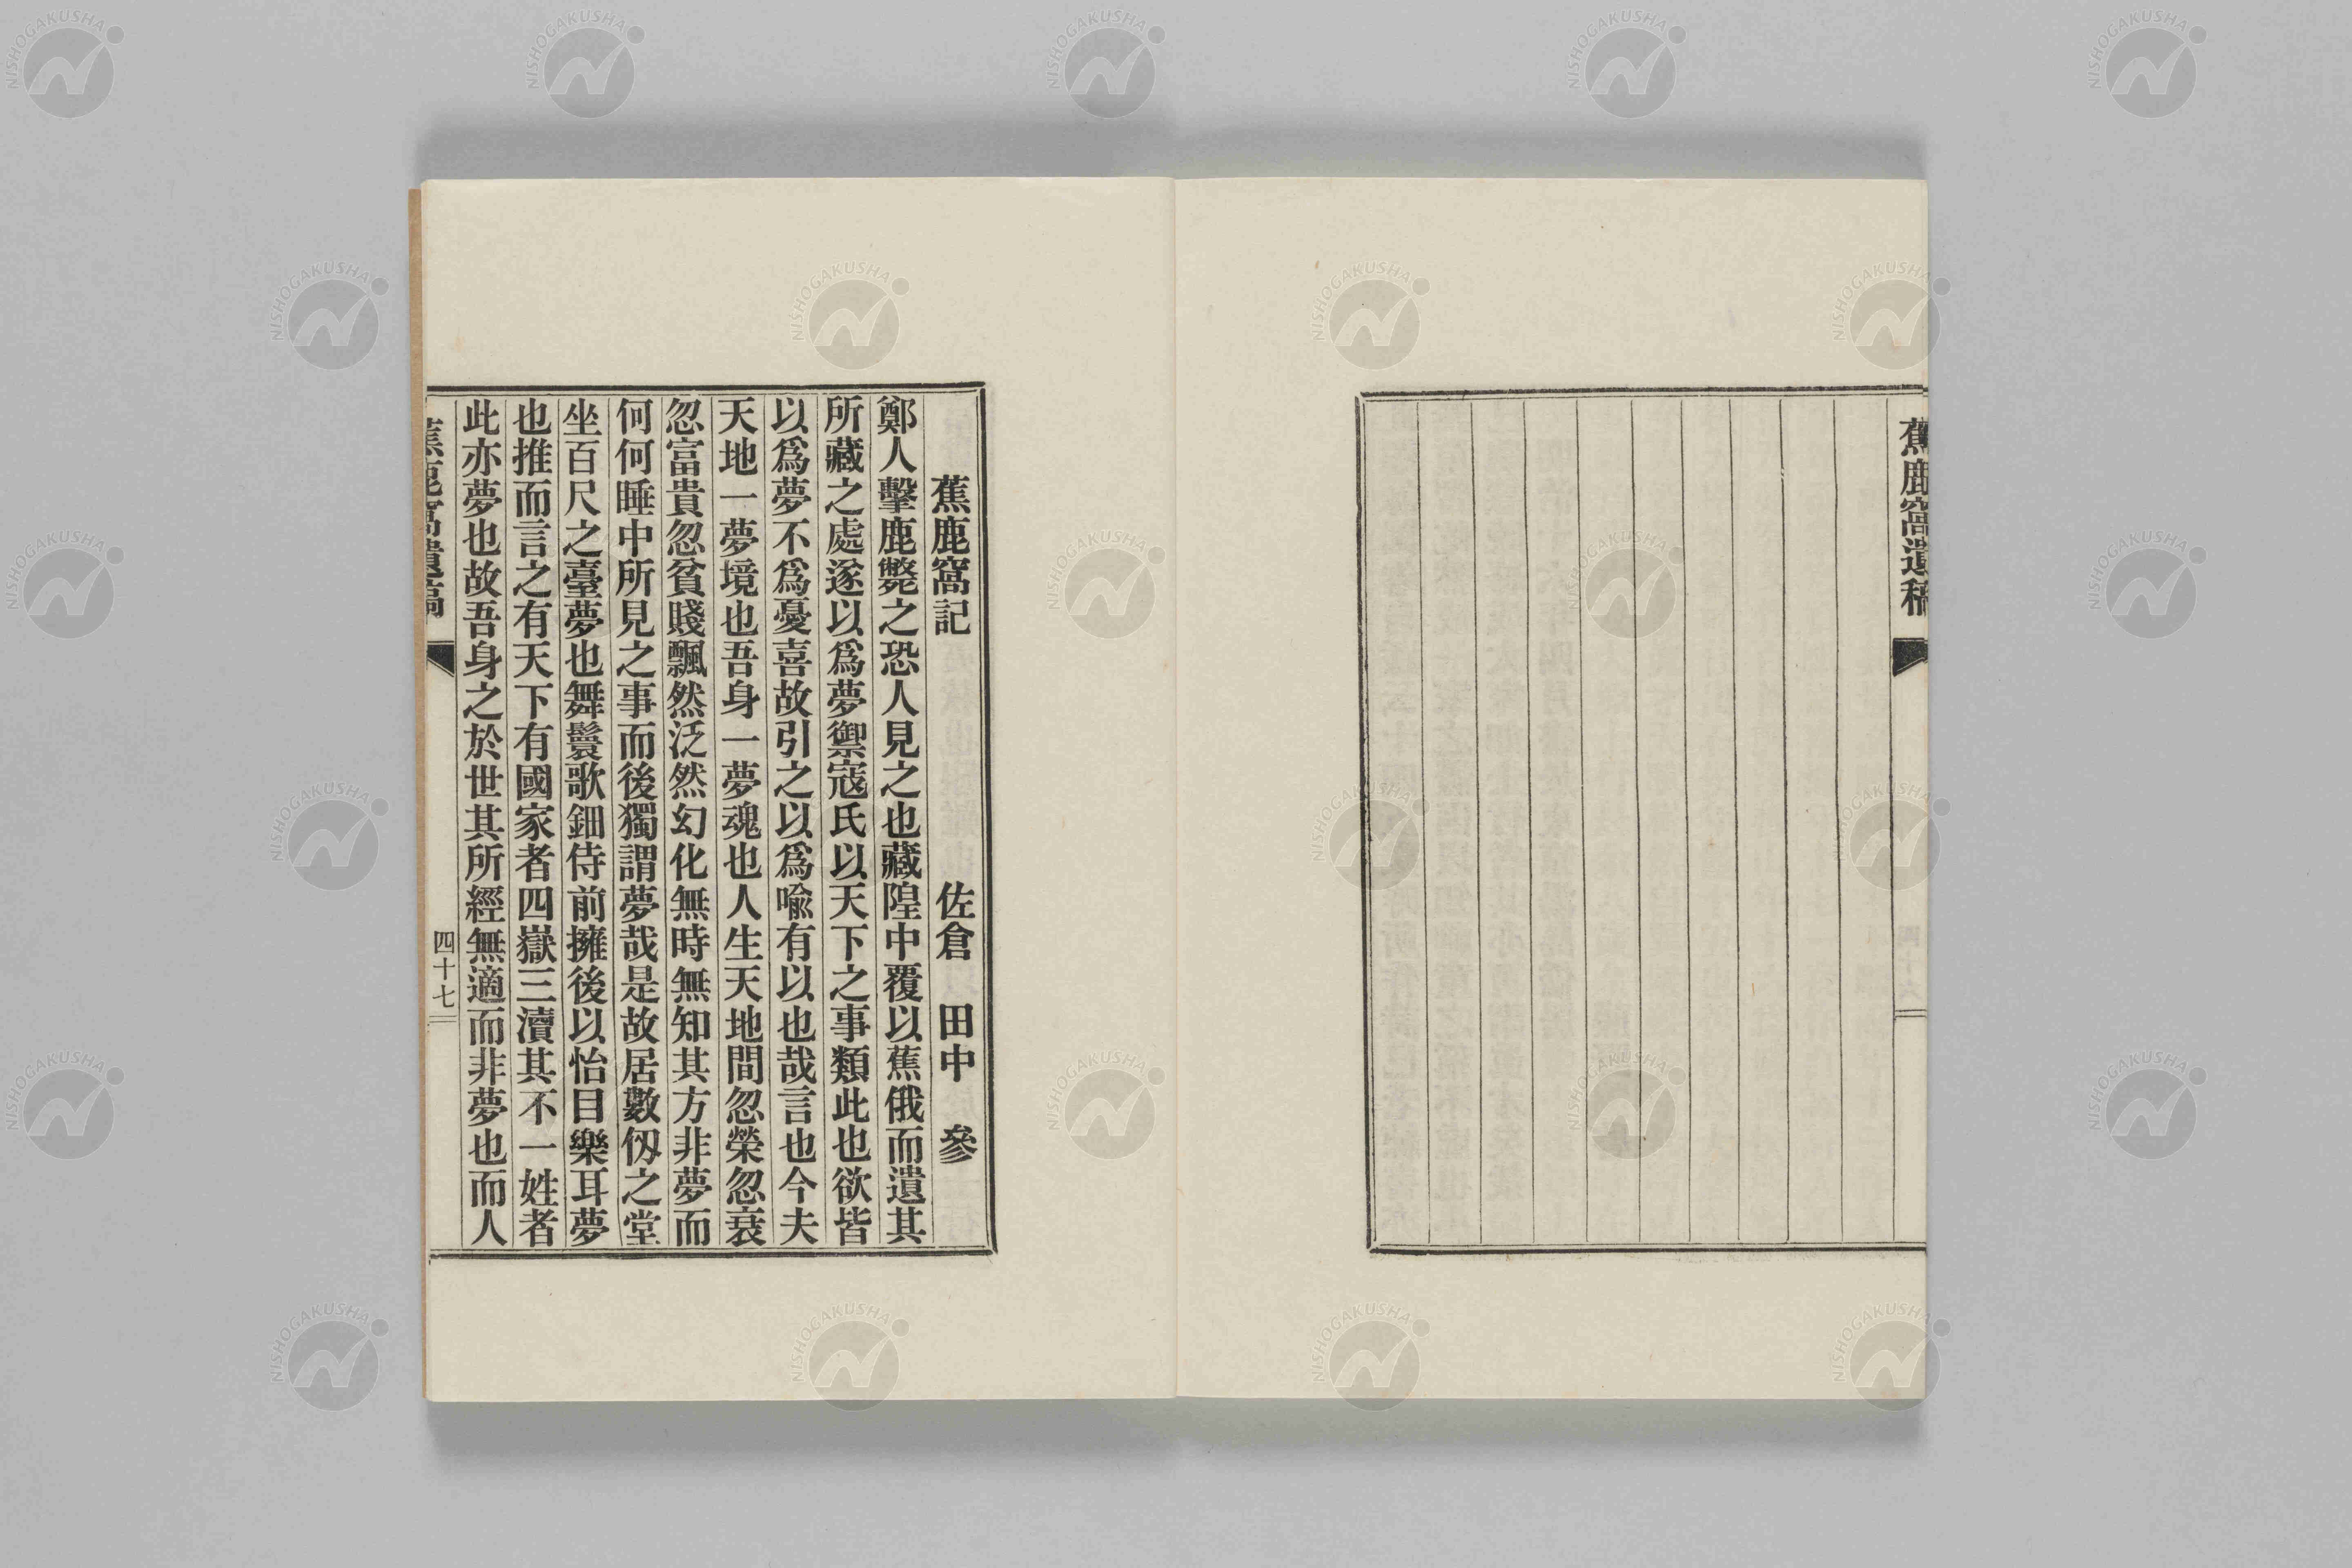 蕉鹿窩遺稿
蕉鹿窩記　佐倉　田中　參
鄭人擊鹿斃之恐人見之也藏隍中覆以蕉俄而遺其
所藏之處遂以爲夢禦寇氏以天下之事類此也欲皆
以爲夢不爲憂喜故引之以爲喩有以也哉言也今夫
天地一夢境也吾身一夢魂也人生天地間忽榮忽衰
忽富貴忽貧賤飄然泛然幻化無時無知其方非夢而
何何睡中所見之事而後獨謂夢哉是故居數仭之堂
坐百尺之臺夢也舞鬟歌鈿侍前擁後以怡目樂耳夢
也推而言之有天下有國家者四嶽三瀆其不一姓者
此亦夢也故吾身之於世其所經無適而非夢也而人
蕉鹿窩遺稿
四十七
NISHOGAKUSHA